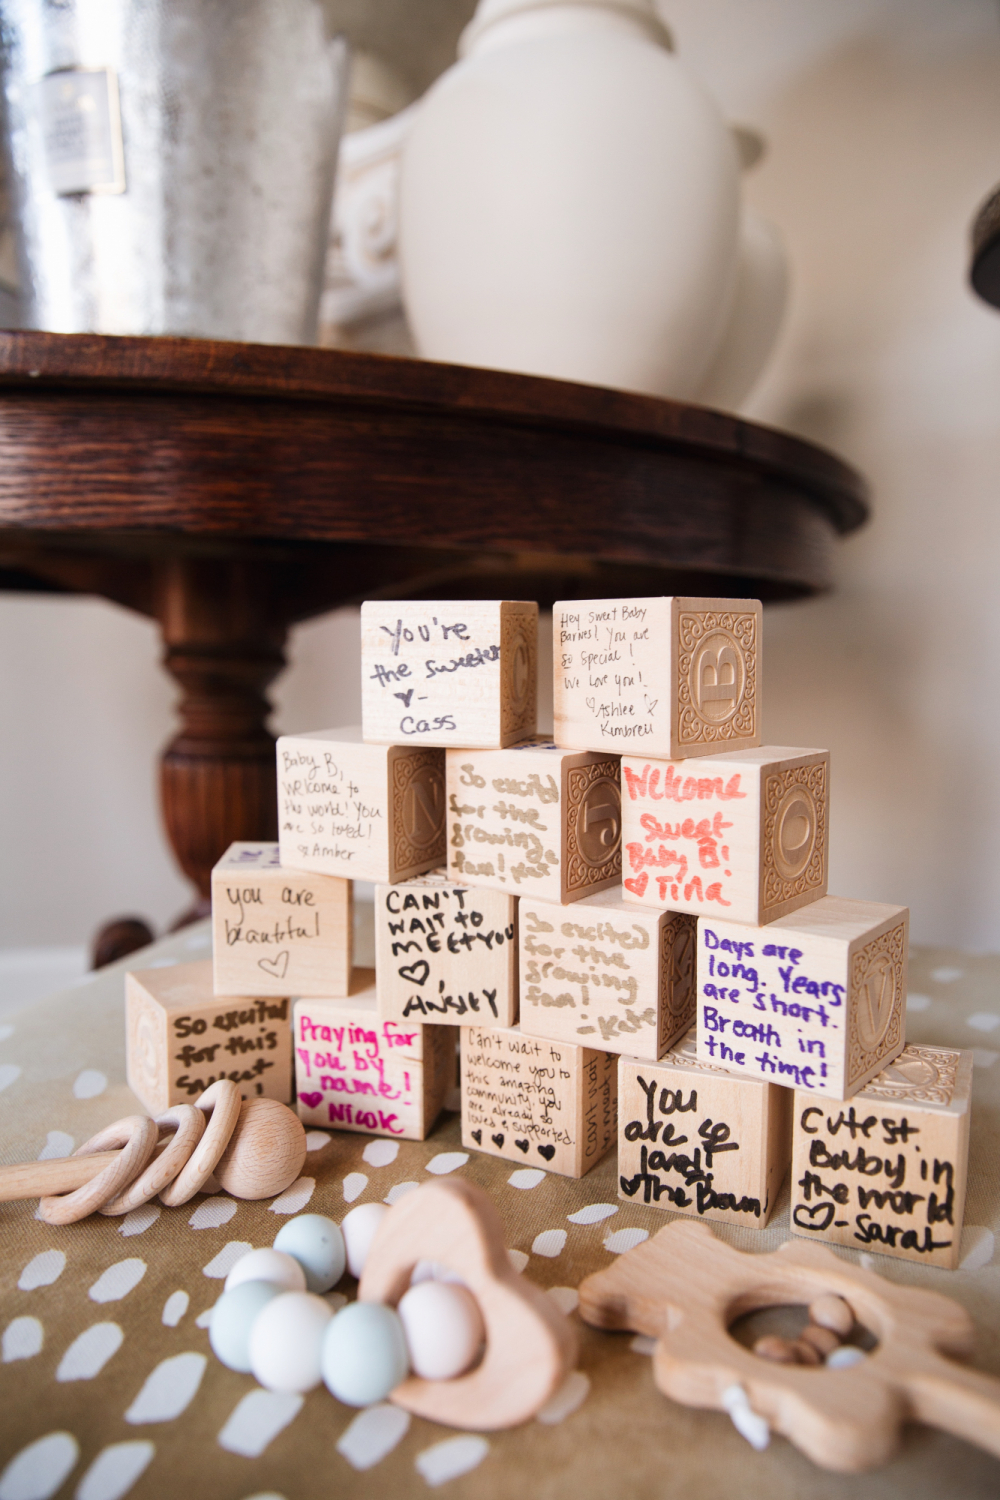 You're
the sweetest
♥-
Cass
C
Hey Sweet Baby
Barnes! You are
so Special!
We Love you!
♡Ashlee
Kimbrell
B
Baby B,
Welcome to
the world! You
are so loved!
Amber
N
So excited
for the
growing
fam!
J
Welcome
Sweet
Baby B!
♥ Tina
O
you are
beautiful
♡
CAN'T
WAIT TO
MEET YOU
♡,
ANSLEY
So excited
for the
growing
fam!
-Kate
Days are
long. Years
are short.
Breath in
the time!
V
So excited
for this
sweet
!
Praying for
you by
name!
♥ Nicole
Can't wait to
welcome you to
this amazing
community. you
are already so
loved & supported.
♥ ♥ ♥ ♥
Can't wait
You
are so
loved!
♥The Brown
Cutest
Baby in
the world
♡-Sarah